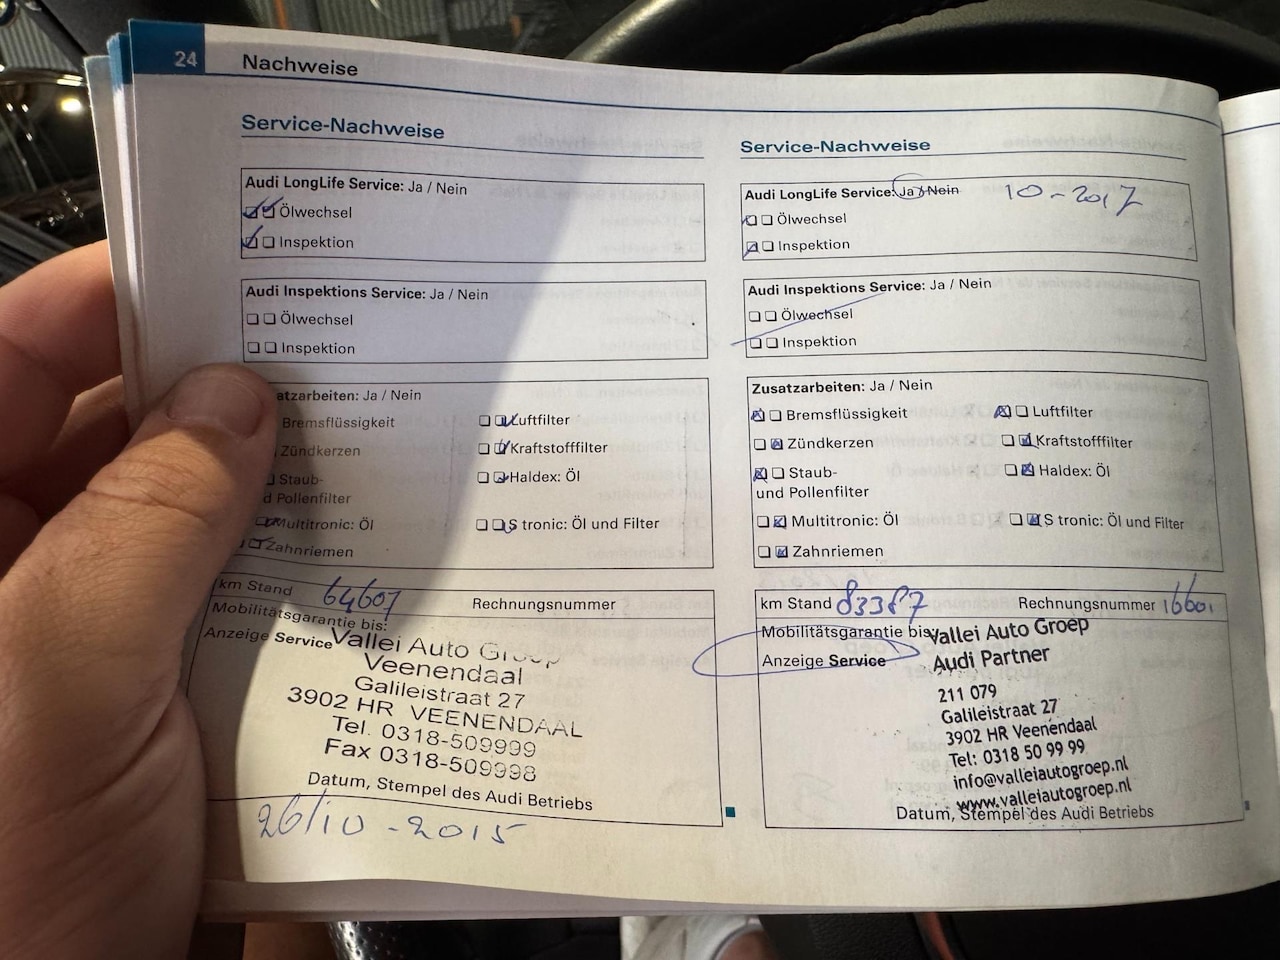 24 Nachweise
Service-Nachweise
Audi LongLife Service: Ja / Nein
Ölwechsel
Inspektion
Audi Inspektions Service: Ja / Nein
Ölwechsel
Inspektion
atzarbeiten: Ja / Nein
Bremsflüssigkeit
Luftfilter
Zündkerzen
Kraftstofffilter
Staub-
d Pollenfilter
Haldex: Öl
Multitronic: Öl
S tronic: Öl und Filter
Zahnriemen
km Stand 64607 Rechnungsnummer
Mobilitätsgarantie bis:
Anzeige Service
Vallei Auto Groep
Veenendaal
Galileistraat 27
3902 HR VEENENDAAL
Tel. 0318-509999
Fax 0318-509998
Datum, Stempel des Audi Betriebs
26/10-2015
Service-Nachweise
Audi LongLife Service: Ja / Nein 10-2017
Ölwechsel
Inspektion
Audi Inspektions Service: Ja / Nein
Ölwechsel
Inspektion
Zusatzarbeiten: Ja / Nein
Bremsflüssigkeit
Luftfilter
Zündkerzen
Kraftstofffilter
Staub-
und Pollenfilter
Haldex: Öl
Multitronic: Öl
S tronic: Öl und Filter
Zahnriemen
km Stand 83387 Rechnungsnummer 16601
Mobilitätsgarantie bis:
Anzeige Service
Vallei Auto Groep
Audi Partner
211 079
Galileistraat 27
3902 HR Veenendaal
Tel: 0318 50 99 99
info@valleiautogroep.nl
www.valleiautogroep.nl
Datum, Stempel des Audi Betriebs